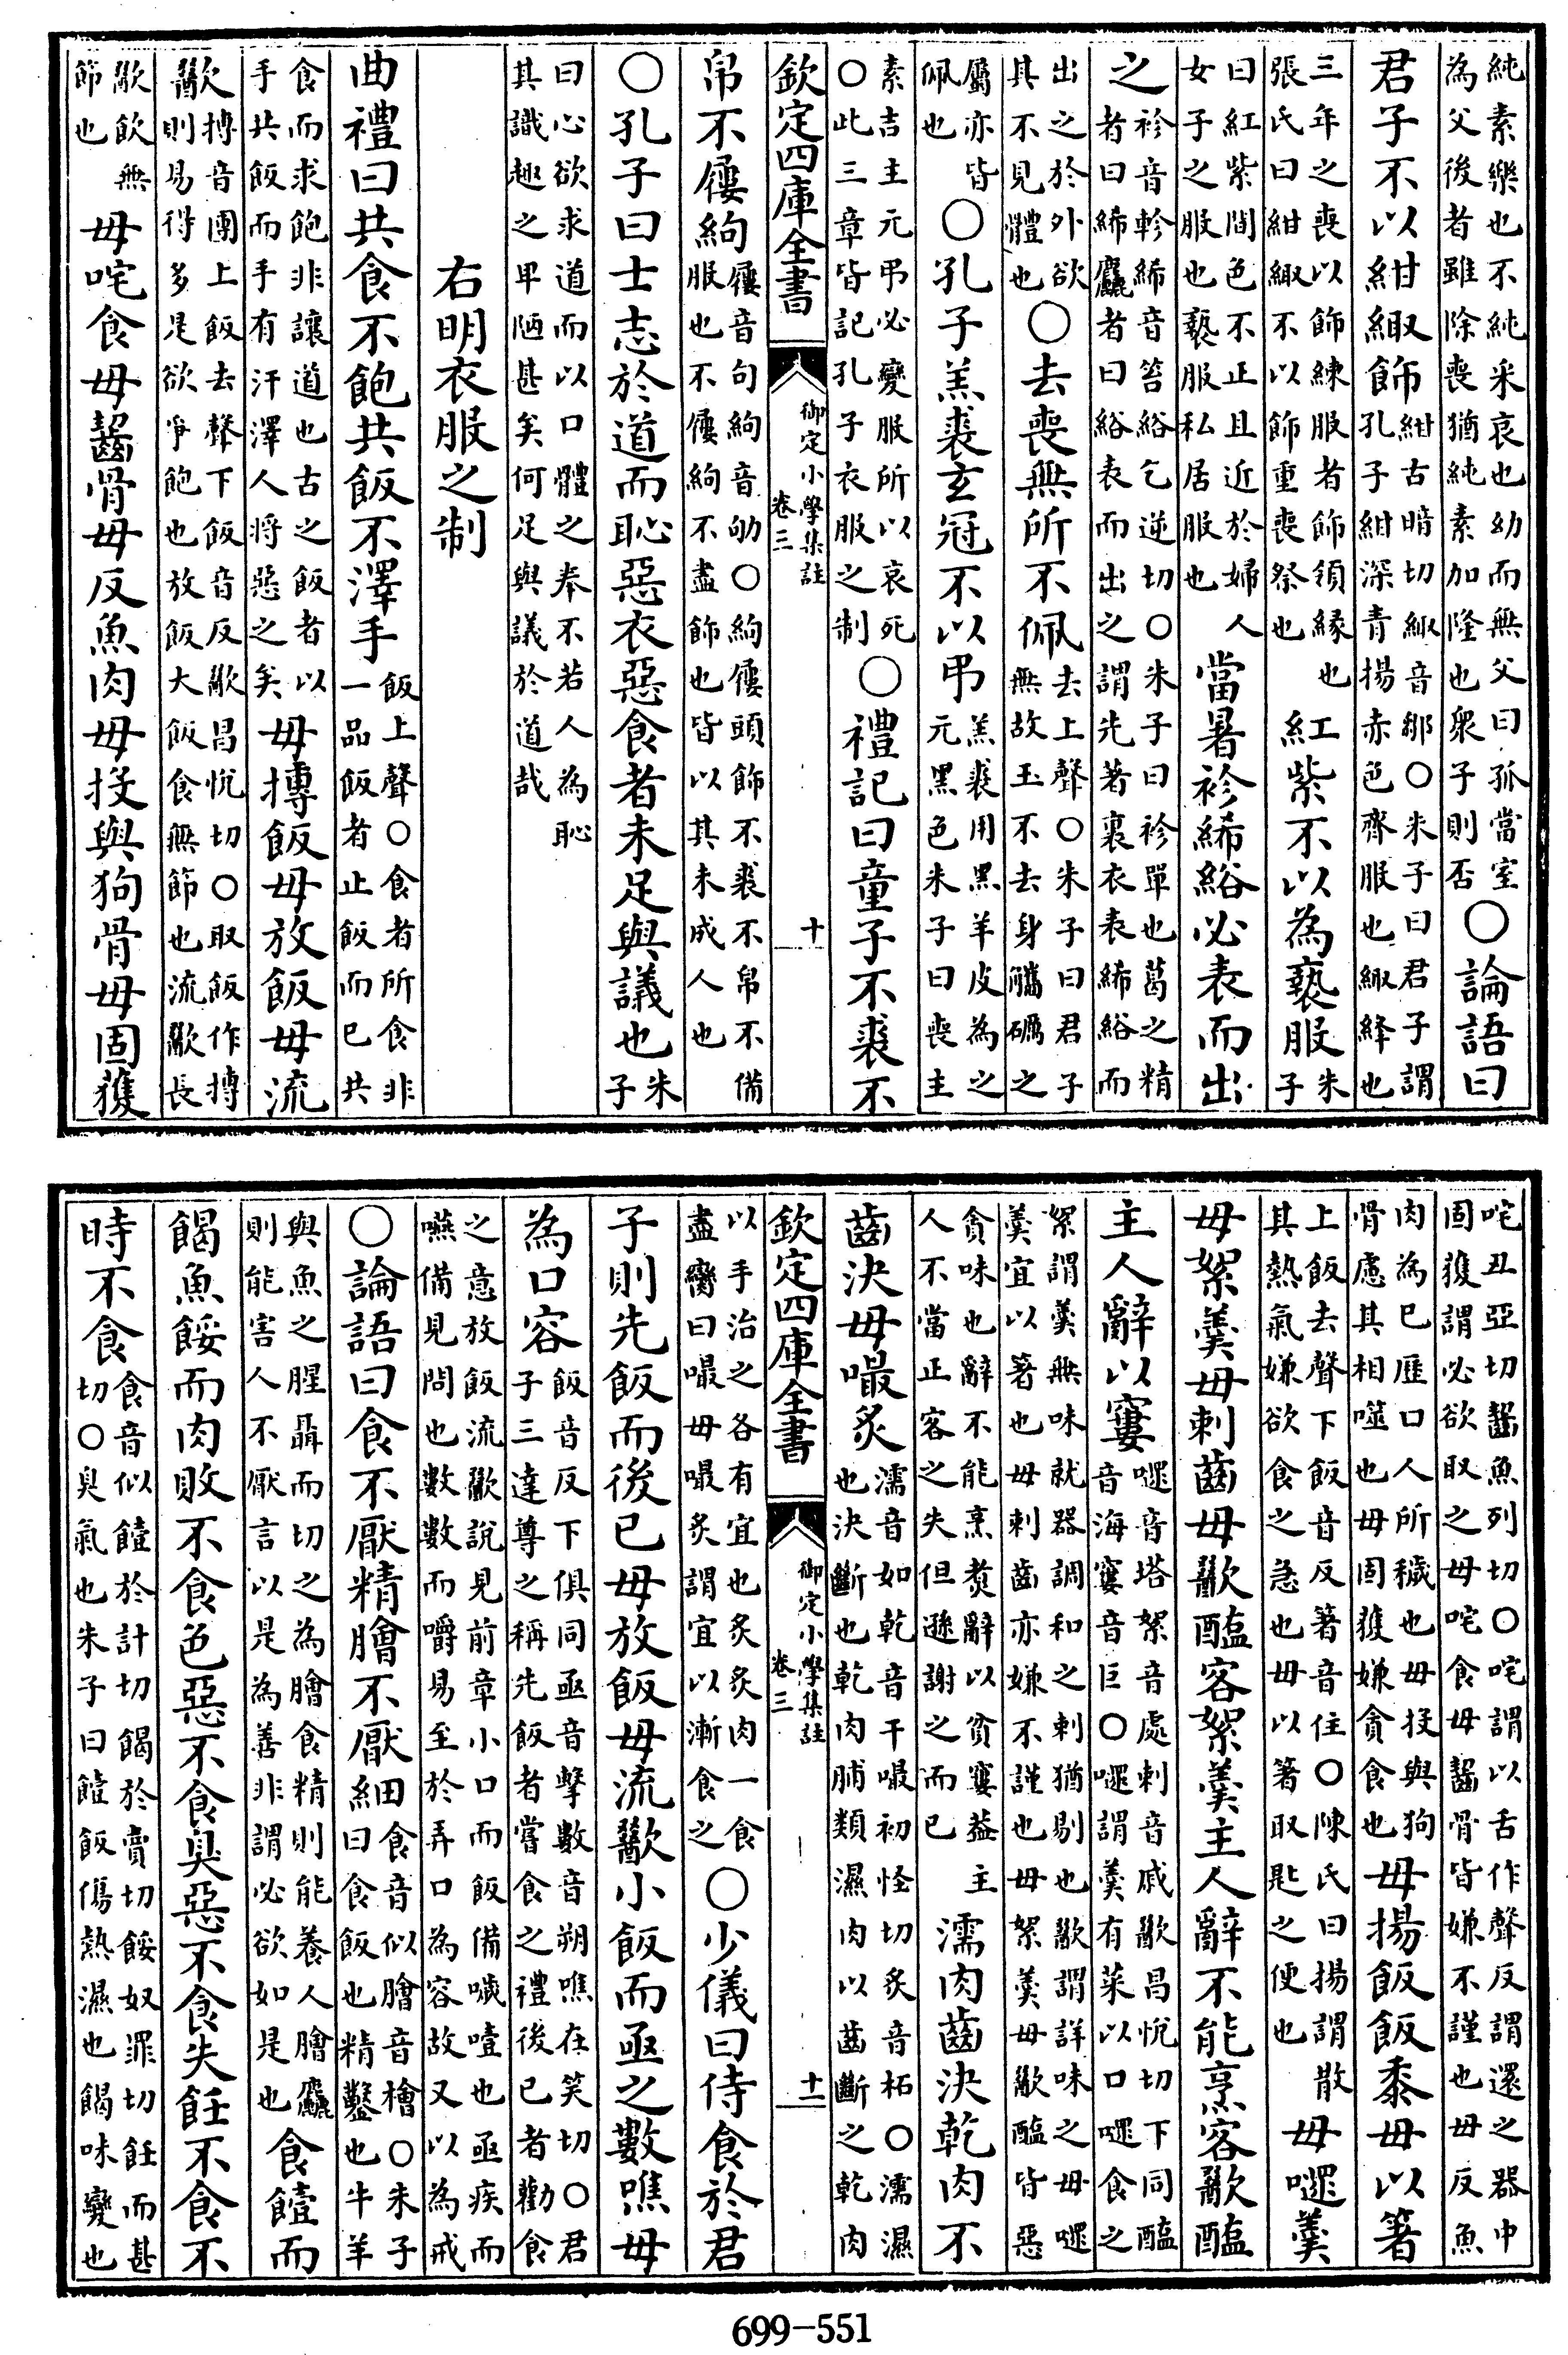 純素樂也不純采哀也幼而無父曰孤當室為父後者雖除喪猶純素加隆也衆子則否○論語曰
君子不以紺緅飾紺古暗切緅音鄒○朱子曰君子謂孔子紺深青揚赤色齊服也緅絳也
三年之喪以飾練服者飾領緣也張氏曰紺緅不以飾重喪祭也紅紫不以為褻服朱子
曰紅紫間色不正且近於婦人女子之服也褻服私居服也當暑袗絺綌必表而出
之袗音軫絺音笞綌乞逆切○朱子曰袗單也葛之精者曰絺麤者曰綌表而出之謂先著裏衣表絺綌而
出之於外欲其不見體也○去喪無所不佩去上聲○朱子曰君子無故玉不去身觿礪之
屬亦皆佩也○孔子羔裘玄冠不以弔羔裘用黑羊皮為之元黑色朱子曰喪主
素吉主元弔必變服所以哀死○此三章皆記孔子衣服之制○禮記曰童子不裘不
欽定四庫全書 御定小學集註 卷三 十
帛不屨絇屨音句絇音劬○絇屨頭飾不裘不帛不備服也不屨絇不盡飾也皆以其未成人也
○孔子曰士志於道而恥惡衣惡食者未足與議也朱子
曰心欲求道而以口體之奉不若人為恥其識趣之卑陋甚矣何足與議於道哉
右明衣服之制
曲禮曰共食不飽共飯不澤手飯上聲○食者所食非一品飯者止飯而已共
食而求飽非讓道也古之飯者以手共飯而手有汗澤人將惡之矣毋摶飯毋放飯毋流
歠摶音團上飯去聲下飯音反歠昌恱切○取飯作摶則易得多是欲爭飽也放飯大飯食無節也流歠長
歠飲無節也毋咤食毋齧骨毋反魚肉毋投與狗骨毋固獲
咤丑亞切齧魚列切○咤謂以舌作聲反謂還之器中固獲謂必欲取之毋咤食毋齧骨皆嫌不謹也毋反魚
肉為已歷口人所穢也毋投與狗骨慮其相噬也毋固獲嫌貪食也毋揚飯飯黍毋以箸
上飯去聲下飯音反箸音住○陳氏曰揚謂散其熱氣嫌欲食之急也毋以箸取匙之便也毋嚃羹
毋絮羹毋刺齒毋歠醢客絮羹主人辭不能烹客歠醢
主人辭以窶嚃音塔絮音處刺音戚歠昌恱切下同醢音海窶音巨○嚃謂羹有菜以口嚃食之
絮謂羹無味就器調和之刺猶剔也歠謂詳味之毋嚃羹宜以箸也毋刺齒亦嫌不謹也毋絮羹毋歠醢皆惡
貪味也辭不能烹煮辭以貧窶葢主人不當正客之失但遜謝之而已濡肉齒決乾肉不
齒決毋嘬炙濡音如乾音干嘬初怪切炙音柘○濡濕也決斷也乾肉脯類濕肉以齒斷之乾肉
欽定四庫全書 御定小學集註 卷三 十一
以手治之各有宜也炙炙肉一食盡臠曰嘬毋嘬炙謂宜以漸食之○少儀曰侍食於君
子則先飯而後已毋放飯毋流歠小飯而亟之數噍毋
為口容飯音反下俱同亟音擊數音朔噍在笑切○君子三達尊之稱先飯者嘗食之禮後已者勸食
之意放飯流歠說見前章小口而飯備噦噎也亟疾而嚥備見問也數數而嚼易至於弄口為容故又以為戒
○論語曰食不厭精膾不厭細食音似膾音檜○朱子曰食飯也精鑿也牛羊
與魚之腥聶而切之為膾食精則能養人膾麤則能害人不厭言以是為善非謂必欲如是也食饐而
餲魚餒而肉敗不食色惡不食臭惡不食失飪不食不
時不食食音似饐於計切餲於賣切餒奴罪切飪而甚切○臭氣也朱子曰饐飯傷熱濕也餲味變也
699-551